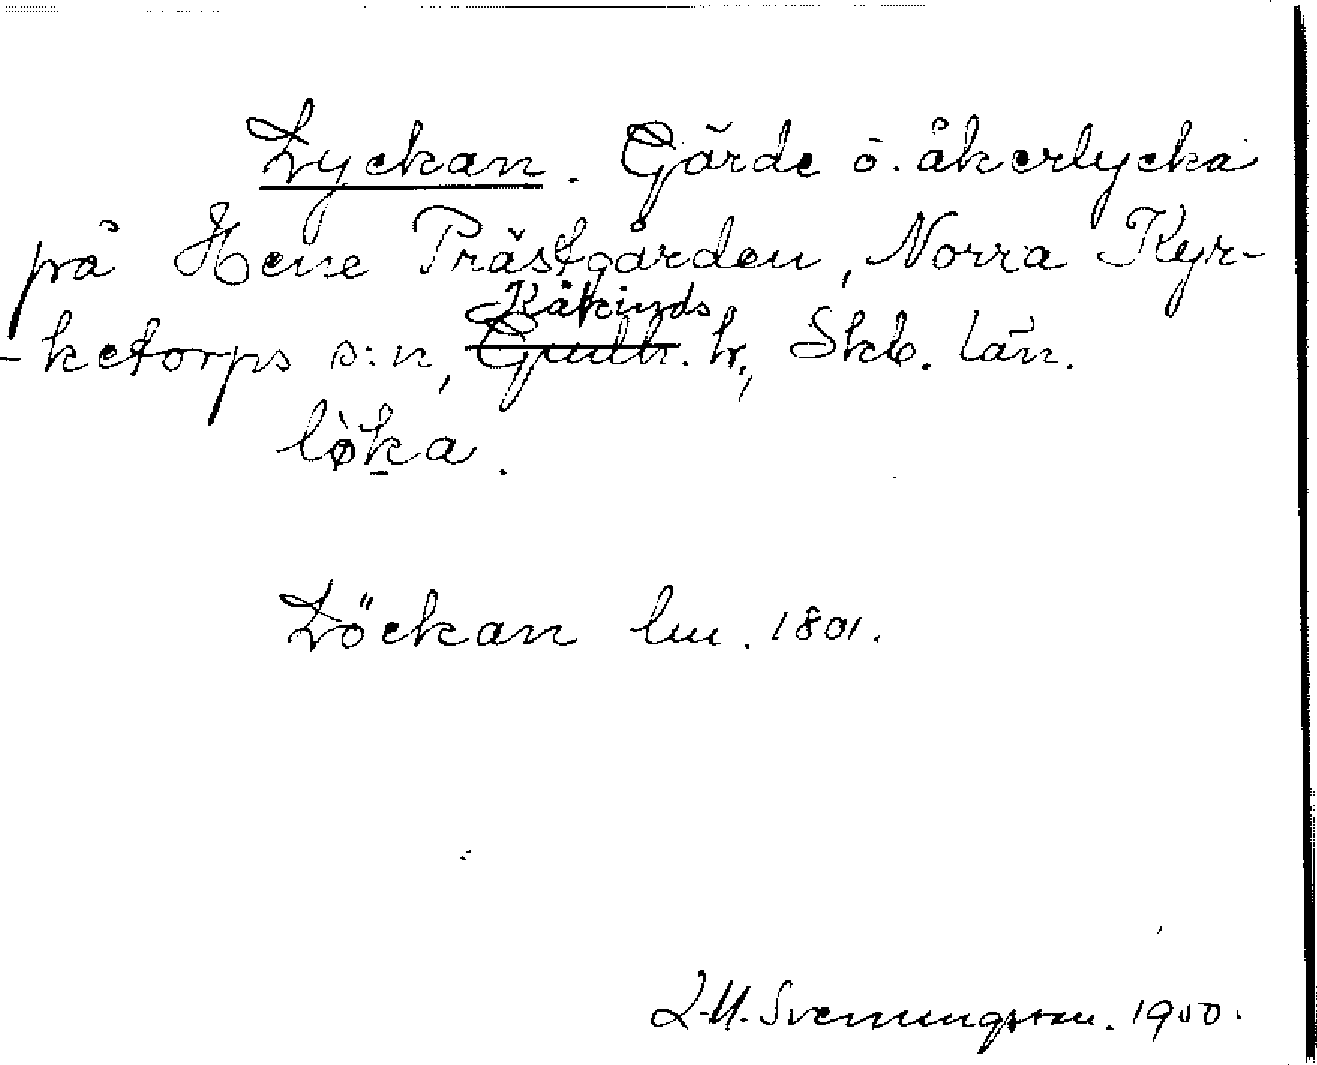 Lyckan. Gärde o. åkerlycka
på Hene Prästgården, Norra Kyr-
-ketorps s:n, Kåkinds Gudh. hr, Skb. län.
lø̀ka.
Löckan lm. 1801.
L.M. Svenningsson. 1900.